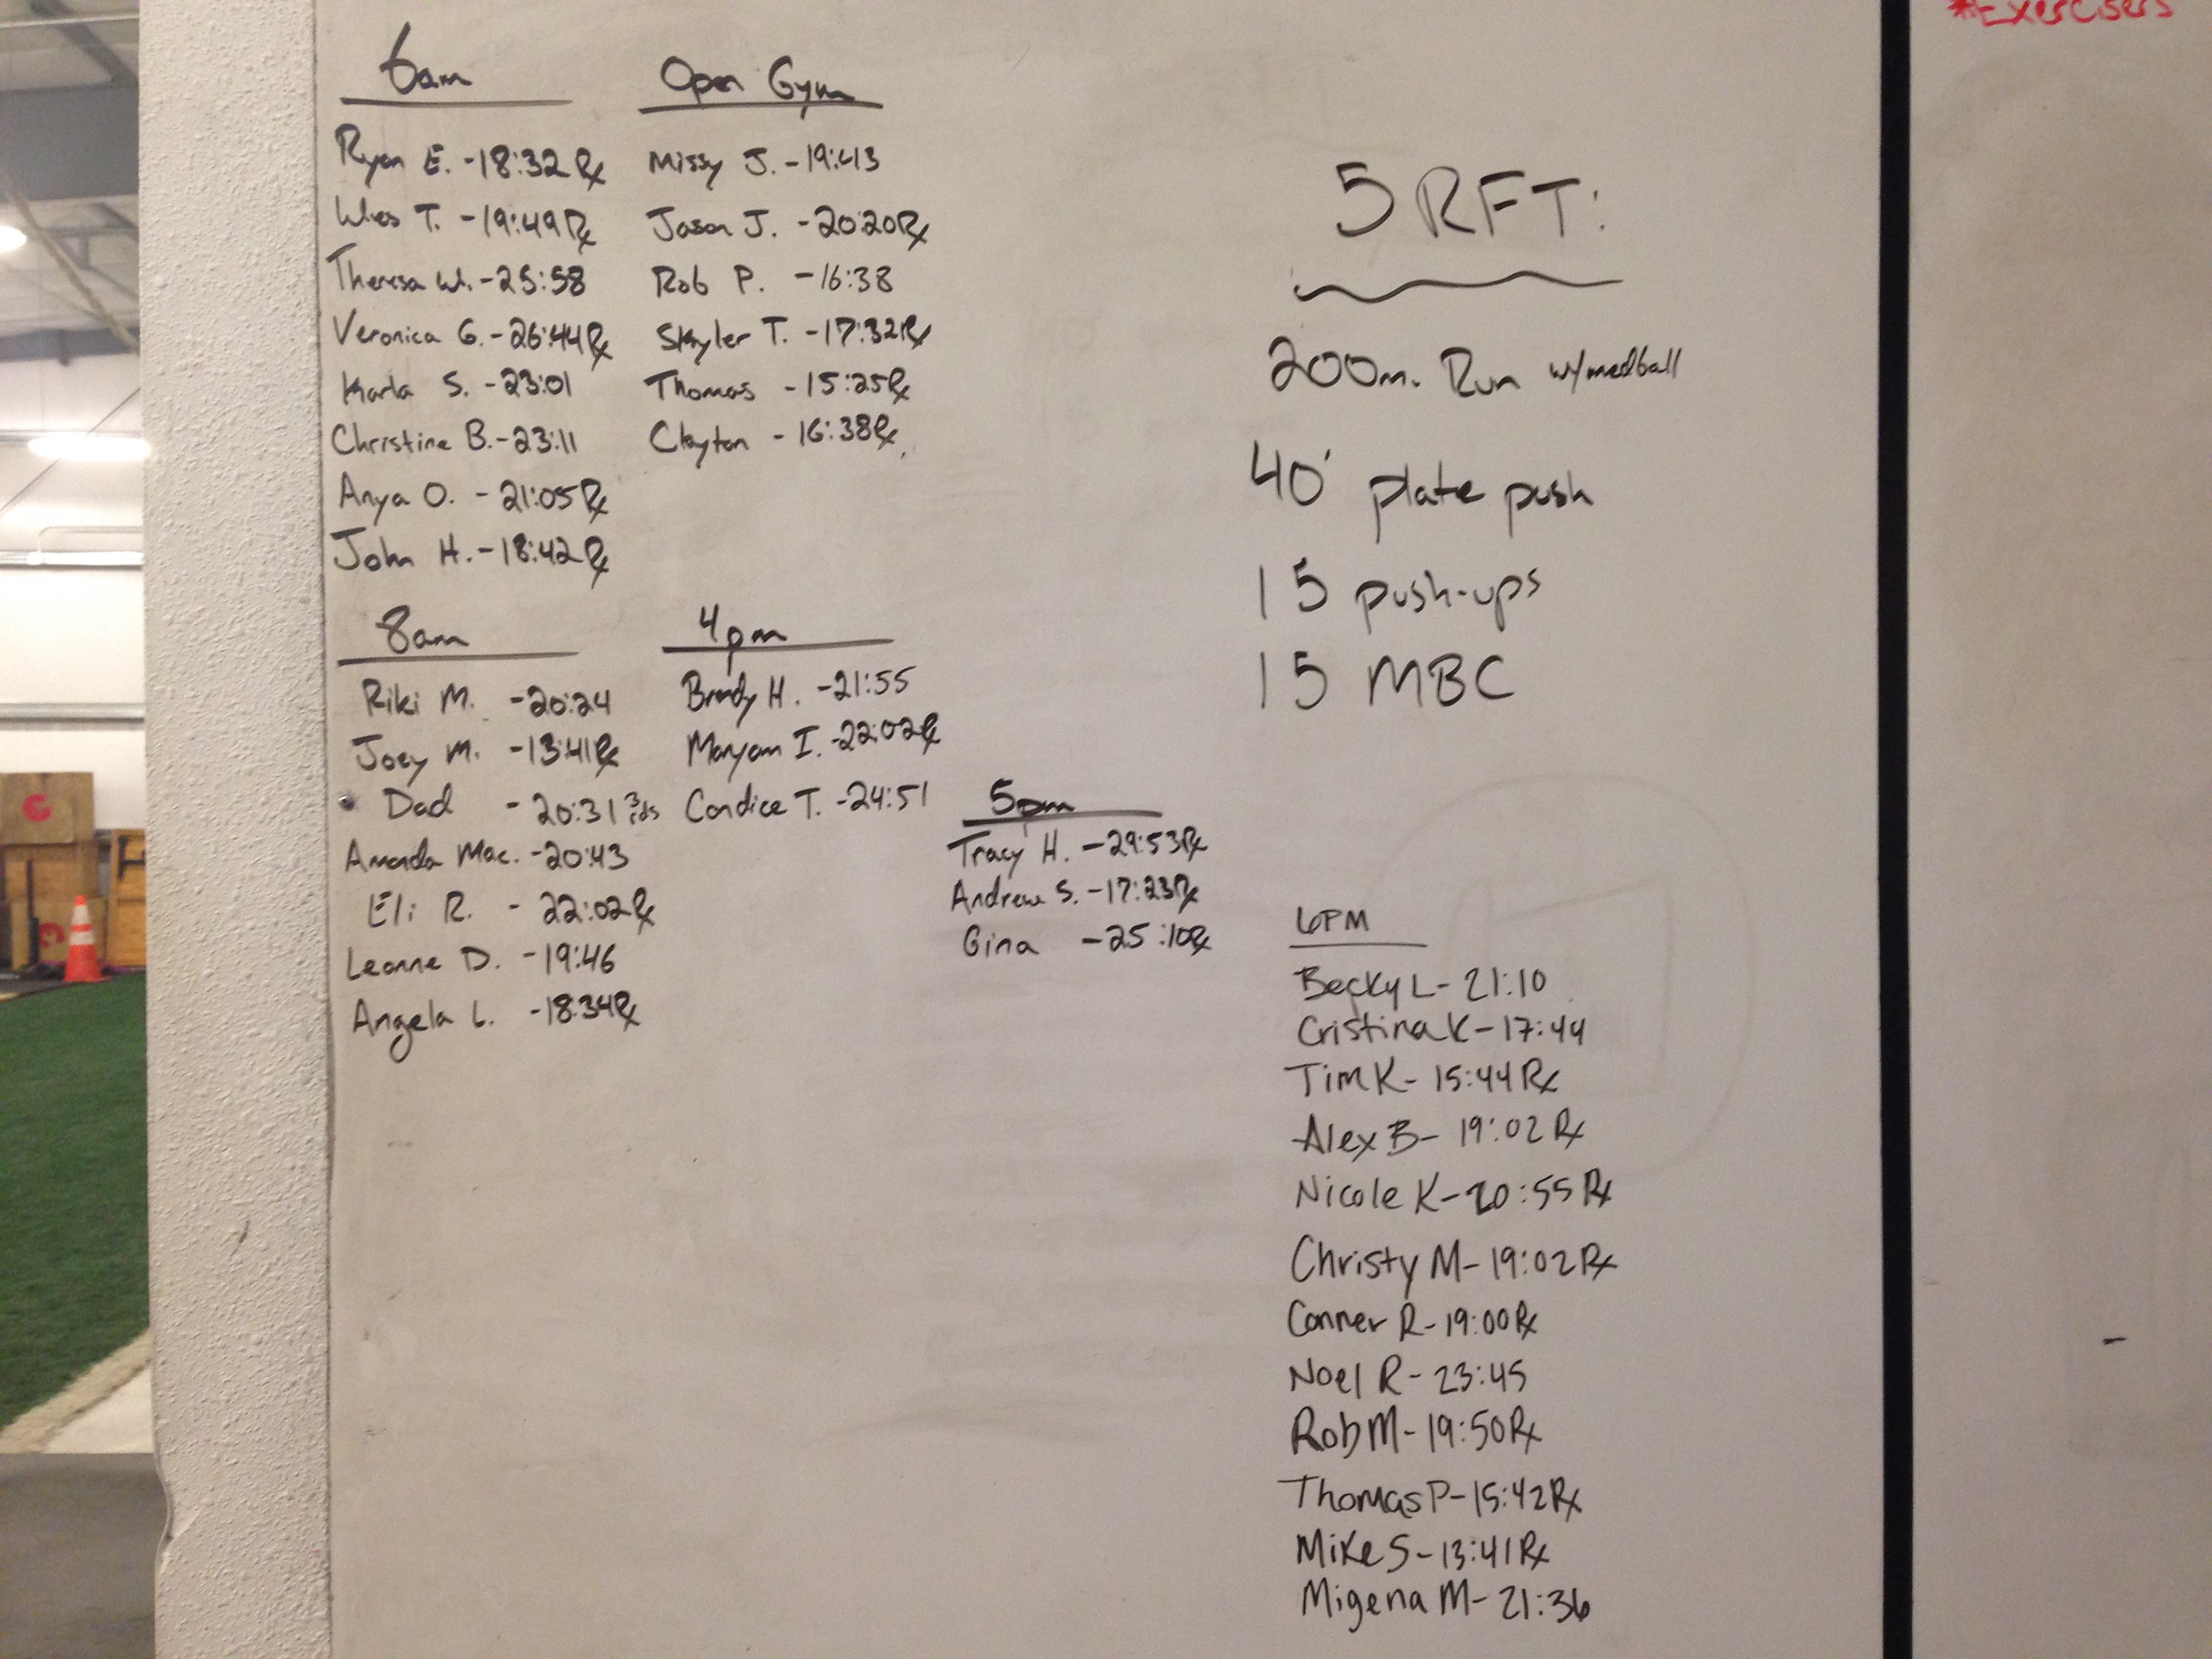 6am
Ryan E. -18:32 Rx
Wes T. -19:49 Rx
Theresa W. -25:58
Veronica G. -26:44 Rx
Karla S. -23:01
Christine B. -23:11
Anya O. - 21:05 Rx
John H. -18:42 Rx
Open Gym
Missy J. -19:43
Jason J. -20:20 Rx
Rob P. -16:38
Skyler T. -17:32 Rx
Thomas -15:25 Rx
Clayton - 16:38 Rx
8am
Riki M. -20:24
Joey M. -13:41 Rx
Dad - 20:31 3 rds
Amanda Mac. -20:43
Eli R. - 22:02 Rx
Leanne D. -19:46
Angela L. -18:34 Rx
4pm
Brady H. -21:55
Maryam I. -22:02 Rx
Candice T. -24:51
5pm
Tracy H. -29:53 Rx
Andrew S. -17:23 Rx
Gina -25:10 Rx
5 RFT:
200m. Run w/medball
40' plate push
15 push-ups
15 MBC
6PM
Becky L- 21:10
Cristina K- 17:44
Tim K- 15:44 Rx
Alex B- 19:02 Rx
Nicole K- 20:55 Rx
Christy M- 19:02 Rx
Conner R- 19:00 Rx
Noel R- 23:45
Rob M- 19:50 Rx
Thomas P- 15:42 Rx
Mike S- 13:41 Rx
Migena M- 21:36
*Exercisers